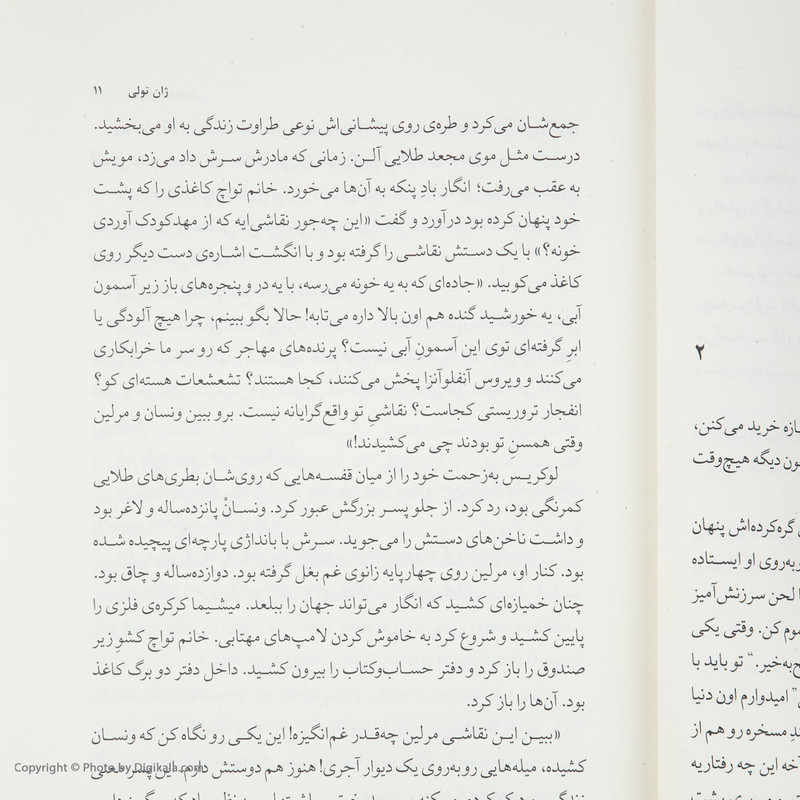 ژان تولی ۱۱
جمع‌شان می‌کرد و طره‌ی روی پیشانی‌اش نوعی طراوت زندگی به او می‌بخشید.
درست مثل موی مجعد طلایی آلن. زمانی که مادرش سرش داد می‌زد، مویش
به عقب می‌رفت؛ انگار بادِ پنکه به آن‌ها می‌خورد. خانم تواچ کاغذی را که پشت
خود پنهان کرده بود درآورد و گفت «این چه‌جور نقاشی‌ایه که از مهدکودک آوردی
خونه؟» با یک دستش نقاشی را گرفته بود و با انگشت اشاره‌ی دست دیگر روی
کاغذ می‌کوبید. «جاده‌ای که به یه خونه می‌رسه، با یه در و پنجره‌های باز زیر آسمون
آبی، یه خورشید گنده هم اون بالا داره می‌تابه! حالا بگو ببینم، چرا هیچ آلودگی یا
ابرِ گرفته‌ای توی این آسمونِ آبی نیست؟ پرنده‌های مهاجر که رو سر ما خرابکاری
می‌کنند و ویروس آنفلوآنزا پخش می‌کنند، کجا هستند؟ تشعشعات هسته‌ای کو؟
انفجار تروریستی کجاست؟ نقاشیِ تو واقع‌گرایانه نیست. برو ببین ونسان و مرلین
وقتی همسنِ تو بودند چی می‌کشیدند!»
لوکریس به‌زحمت خود را از میان قفسه‌هایی که روی‌شان بطری‌های طلایی
کمرنگی بود، رد کرد. از جلو پسر بزرگش عبور کرد. ونسانْ پانزده‌ساله و لاغر بود
و داشت ناخن‌های دستش را می‌جوید. سرش با بانداژی پارچه‌ای پیچیده شده
بود. کنار او، مرلین روی چهارپایه زانوی غم بغل گرفته بود. دوازده‌ساله و چاق بود.
چنان خمیازه‌ای کشید که انگار می‌تواند جهان را ببلعد. میشیما کرکره‌ی فلزی را
پایین کشید و شروع کرد به خاموش کردن لامپ‌های مهتابی. خانم تواچ کشوِ زیر
صندوق را باز کرد و دفتر حساب‌وکتاب را بیرون کشید. داخل دفتر دو برگ کاغذ
بود. آن‌ها را باز کرد.
«ببین این نقاشی مرلین چه‌قدر غم‌انگیزه! این یکی رو نگاه کن که ونسان
کشیده، میله‌هایی روبه‌روی یک دیوار آجری! هنوز هم دوستش دارم. این پسر
۲
خرید می‌کنن،
دیگه هیچ‌وقت
گره‌کرده‌اش پنهان
او ایستاده
لحن سرزنش‌آمیز
کن. وقتی یکی
تو باید با
امیدوارم اون دنیا
مسخره رو هم از
آخه این چه رفتاریه
Copyright © Photo by Digikala.com